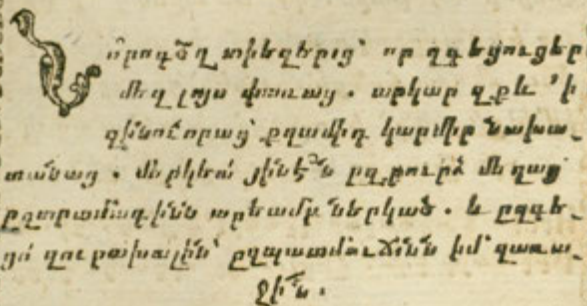 Նորոգօղ տիեզերաց՝ որ զգեցուցեր
մեզ լոյս փառաց . արկար զքև ՚ի
զինուորաց՝ քղամիդ կարմիր նախա_
տանաց . մերկեա՛ յինէն ըզքուրձ մեղաց՝
արեամբ ներկած . և ըզգե_
ցո՛ զուրախալին՝ ըզպատմուճանն իմ՝ զառա_
ջին .